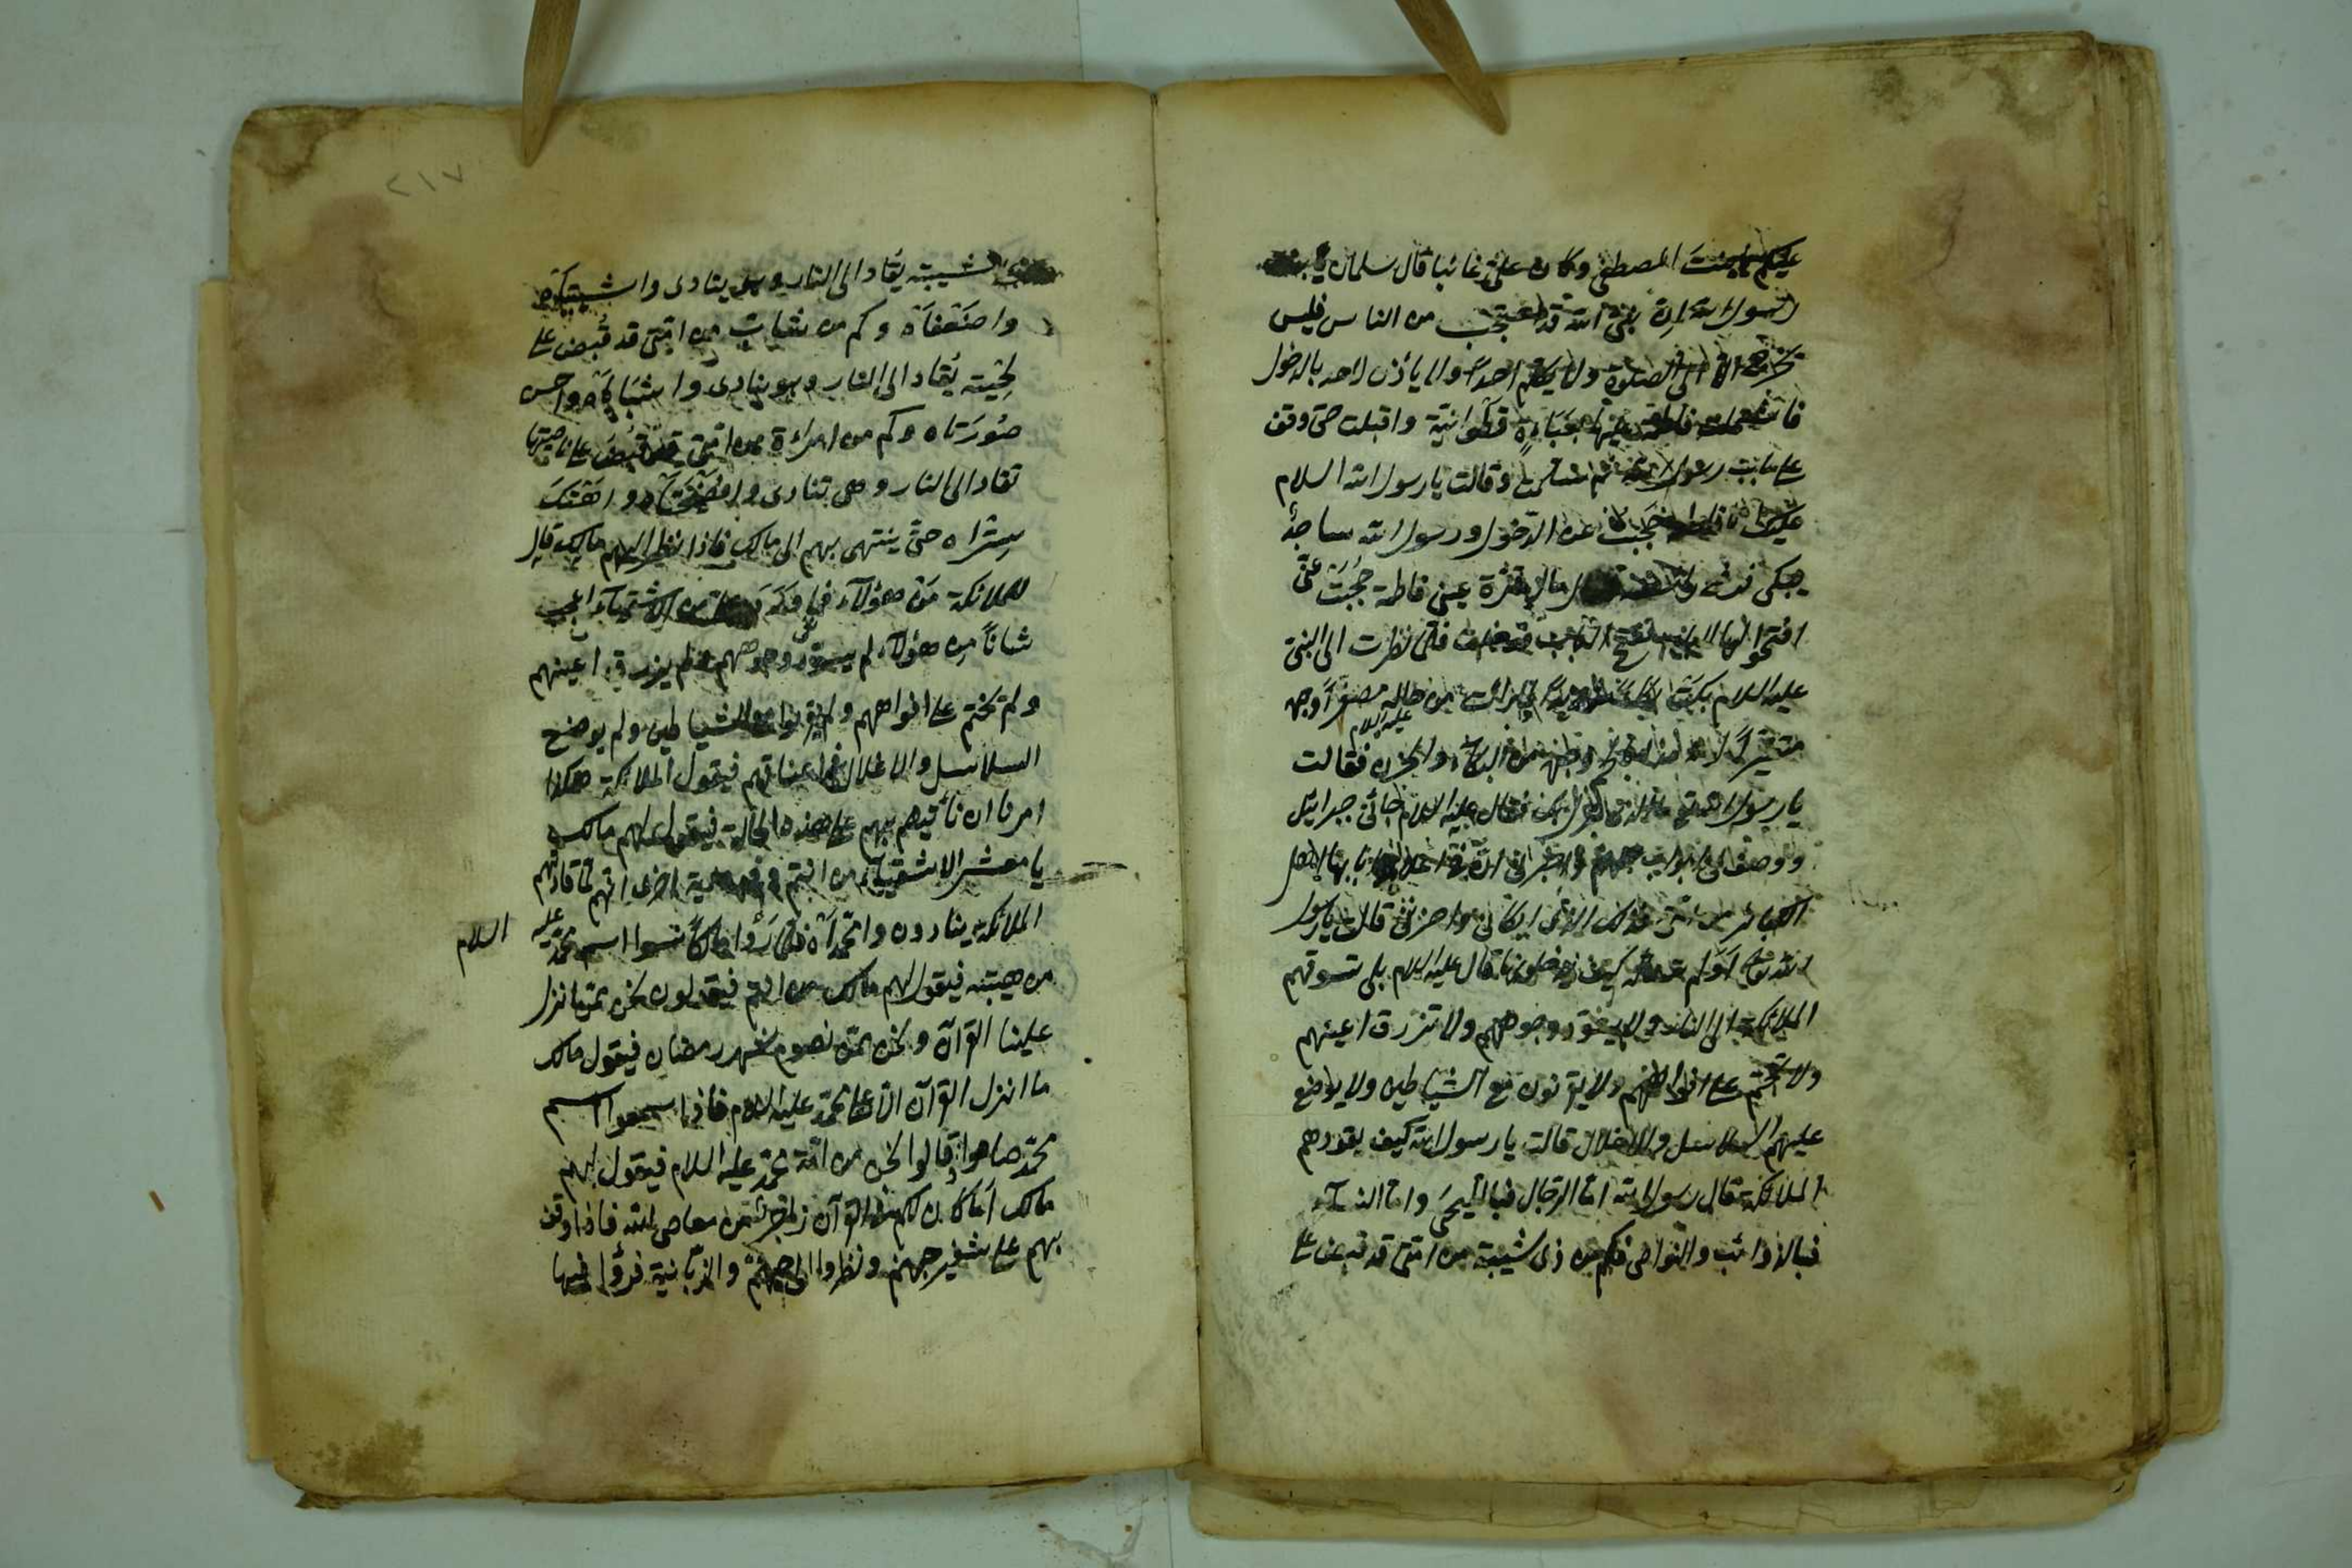 عليكم يا بنت المصطفى وكان علىّ غائبا قال سلمان يا بنت
رسول الله ان نبىّ الله قد احتجب من الناس فليس
يخرج الا الى الصلوة ولا يكلم احداً ولا يأذن لاحد بالدخول
فاشتملت فاطمة بعباءة قطوانيّة واقبلت حتى وقف
على باب رسول الله ثم سلمت وقالت يا رسول الله السلام
عليك انا فاطمة ورسول الله ساجدٌ
يبكى فرفع رأسه قال ما لقرّة عينى فاطمة حُجبَت عنّى
افتحوا لها الباب ففتح الباب فدخلت فلمّا نظرت الى النبىّ
عليه السلام بكت بكاءً شديداً لما رأت من حاله مصفرّاً وجهه
متغيّراً لحم وجهه من البكاء والحزن فقالت
عليه السلام
يا رسول الله ما الذى نزل عليك فقال عليه السلام جائنى جبرائيل
ووصف لى ابواب جهنم واخبرنى انّ فى اعلا بابها لاهل
الكبائر من امّتى فذلك الذى ابكانى واحزننى قالت يا رسول
الله اَوَلم تسأله كيف يدخلونها قال عليه السلام بلى تسوقهم
الملائكة الى النار ولا يسوّد وجوههم ولا تزرق اعينهم
ولا يختم على افواههم ولا يقرنون مع الشياطين ولا يوضع
عليهم السلاسل والاغلال قالت يا رسول الله كيف يقودهم
الملائكة قال رسول الله امّا الرجال فباللّحى وامّا النسآء
فبالذوائب والنواصى فكم من ذى شيبة من امّتى قد قبض على
٢١٧
شيبته يقاد الى النار وهو ينادى واشيبتاه
واضَعْفَاه وكم من شابّ من امّتى قد قُبِض على
لحْيَته يُقاد الى النار وهو ينادى واشبَاباه واحسن
صُورَتاه وكم من امرأة من امّتى قد قُبِضَ على ناصيتها
تقاد الى النار وهى تنادى وافضيحتاه واهَتْكَ
سِتْراه حتّى ينتهى بهم الى مالك فاذا نظر اليهم مالك قال
للملائكة مَن هؤلآء فما وَرَدَ علىّ من الاشقيآء اعجب
شاناً من هؤلآء لم يسوّد وجوههم ولم يزرق اعينهم
ولم يختم على افواههم ولم يقرنوا مع الشياطين ولم يوضع
السلاسل والاغلال فى اعناقهم فيقول الملائكة هكذا
امرنا ان نأتيهم بهم على هذه الحالة فيقول لهم مالك
يا معشر الاشقيآء من انتم وفى رواية اخرى انّهم لمّا قادتهم
الملائكة ينادون وامحمّداه فلمّا رَأوا مالكاً نسوا اسم محمّد عليه السلام
من هيبته فيقول لهم مالك من انتم فيقولون نحن ممّن انزل
علينا القرآن ونحن ممّن نصوم شهر رمضان فيقول مالك
ما انزل القرآن الّا على محمّد عليه السلام فاذا سمعوا اسم
محمّد صاحوا وقالوا نحن من امّة محمّد عليه السلام فيقول لهم
مالك اما كان لكم فى القرآن زاجر من معاصى الله فاذا وقف
بهم على شفير جهنم ونظروا الى جهنّم والزبانية قرؤا فيها